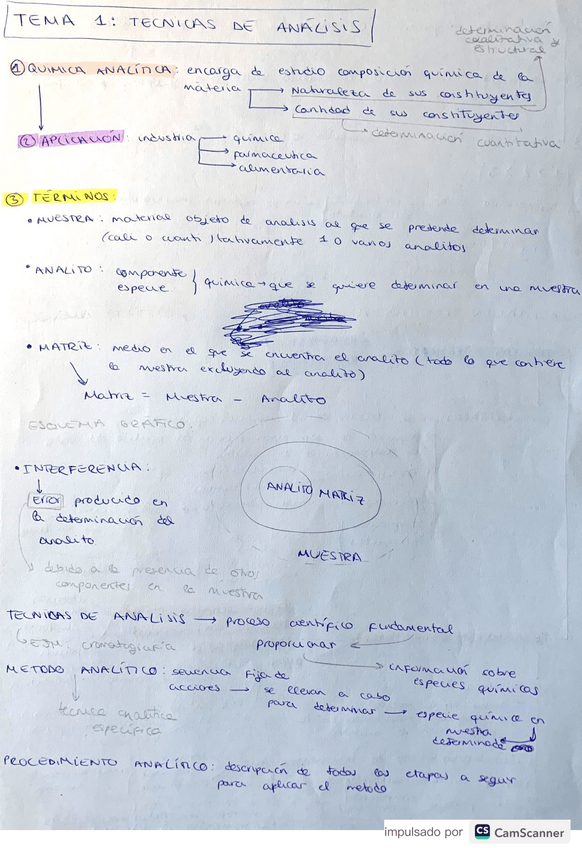 TEMA 1: TECNICAS DE ANÁLISIS
determinación
cualitativa y
estructural
① QUIMICA ANALÍTICA: encarga de estudio composición química de la
materia → Naturaleza de sus constituyentes
→ Cantidad de sus constituyentes
→ determinación cuantitativa
② APLICACIÓN: industria → química
→ farmaceutica
→ alimentaria
③ TÉRMINOS:
• MUESTRA: material objeto de analisis al que se pretende determinar
(cali o cuanti) tativamente 1 o varios analitos
• ANALITO: componente
especie } química → que se quiere determinar en una muestra
• MATRIZ: medio en el que se encuentra el analito (todo lo que contiene
la muestra excluyendo al analito)
Matriz = Muestra - Analito
ESQUEMA GRÁFICO:
• INTERFERENCIA:
Error producido en
la determinación del
analito
ANALITO MATRIZ
MUESTRA
debido a la presencia de otros
componentes en la muestra
TECNICAS DE ANALISIS → proceso científico fundamental
cromatografía
proporcionar
→ información sobre
especies químicas
METODO ANALÍTICO: secuencia fija de
acciones → se llevan a cabo
para determinar → especie química en
muestra
determinada
técnica analítica
específica
PROCEDIMIENTO ANALÍTICO: descripción de todas las etapas a seguir
para aplicar el metodo
impulsado por CS CamScanner